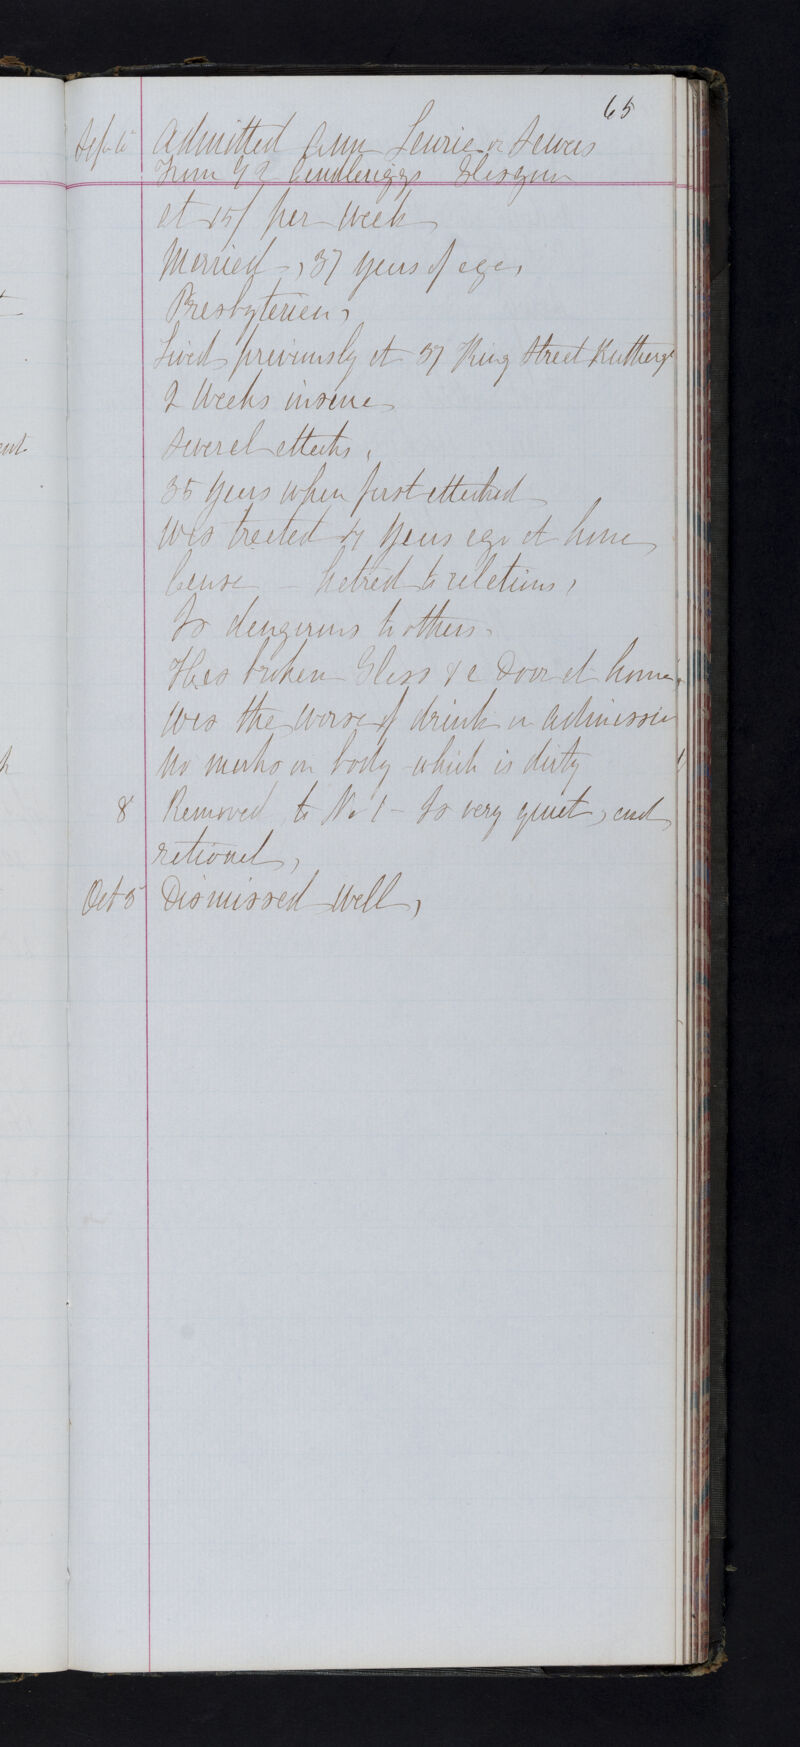 65
Sept 5 Admitted Ann Lawrie or
From 92 Candleriggs Glasgow
at 15/ per week
Married, 37 years of age,
Presbyterian,
Lived previously at 37 King Street
2 Weeks insane
Several attacks,
35 years when first attacked
Was treated years ago at home
Cause - hatred to relations,
Is dangerous to others.
Has broken Glass & a Door at home.
Was the worse of drink on admission
No marks on body which is dirty
8 Removed to No 1 - Is very quiet, and
rational,
Oct 5 Dismissed Well,